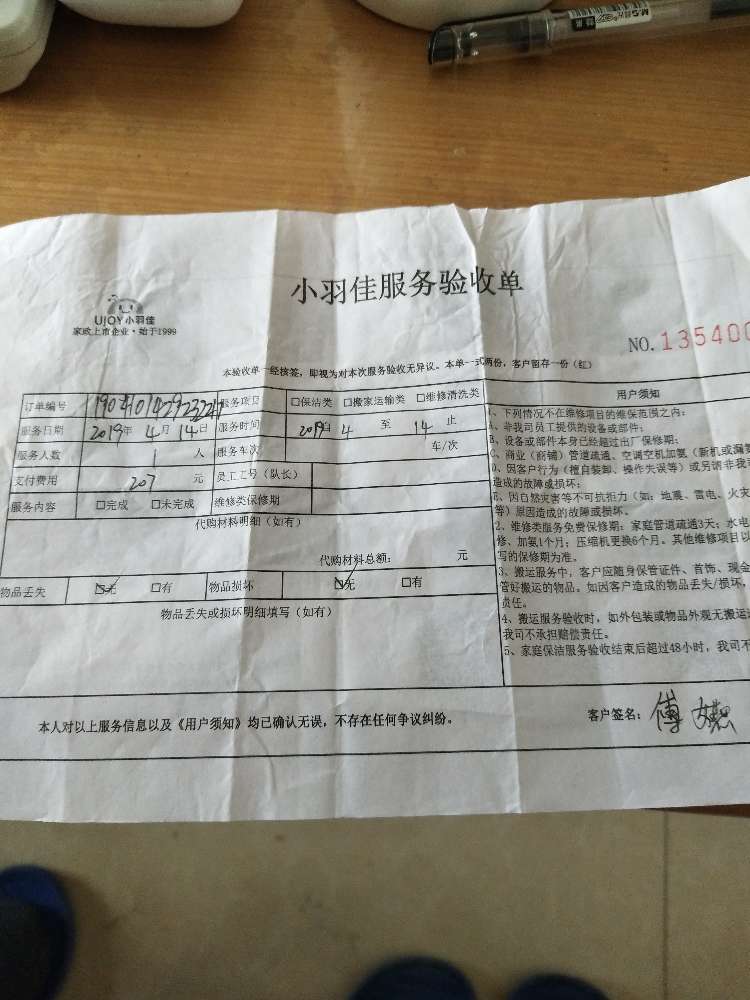 M&G
小羽佳服务验收单
UJOY小羽佳
家政上市企业·始于1999
NO.135400
本验收单一经核签，即视为对本次服务验收无异议。本单一式两份，客户留存一份（红）
订单编号 服务项目 □保洁类 □搬家运输类 □维修清洗类
服务日期 2019年 4月 14日 服务时间 2019 4 至 14 止
服务人数 1 人 服务车次 车/次
支付费用 207 元 员工工号（队长）
服务内容 □完成 □未完成 维修类保修期
代购材料明细（如有）
代购材料总额： 元
物品丢失 □无 □有 物品损坏 □无 □有
物品丢失或损坏明细填写（如有）
用户须知
1、下列情况不在维修项目的维保范围之内：
A、非我司员工提供的设备或部件；
B、设备或部件本身已经超过出厂保修期；
C、商业（商铺）管道疏通、空调空机加氨（新机或漏氨
D、因客户行为（擅自装卸、操作失误等）或另请非我司
造成的故障或损坏；
E、因自然灾害等不可抗拒力（如：地震、雷电、火灾
等）原因造成的故障或损坏。
2、维修类服务免费保修期：家庭管道疏通3天；水电
修、加氨1个月；压缩机更换6个月。其他维修项目以
写的保修期为准。
3、搬运服务中，客户应随身保管证件、首饰、现金
管好搬运的物品，如因客户造成的物品丢失/损坏，
责任。
4、搬运服务验收时，如外包装或物品外观无搬运
我司不承担赔偿责任。
5、家庭保洁服务验收结束后超过48小时，我司不
本人对以上服务信息以及《用户须知》均已确认无误，不存在任何争议纠纷。
客户签名：傅